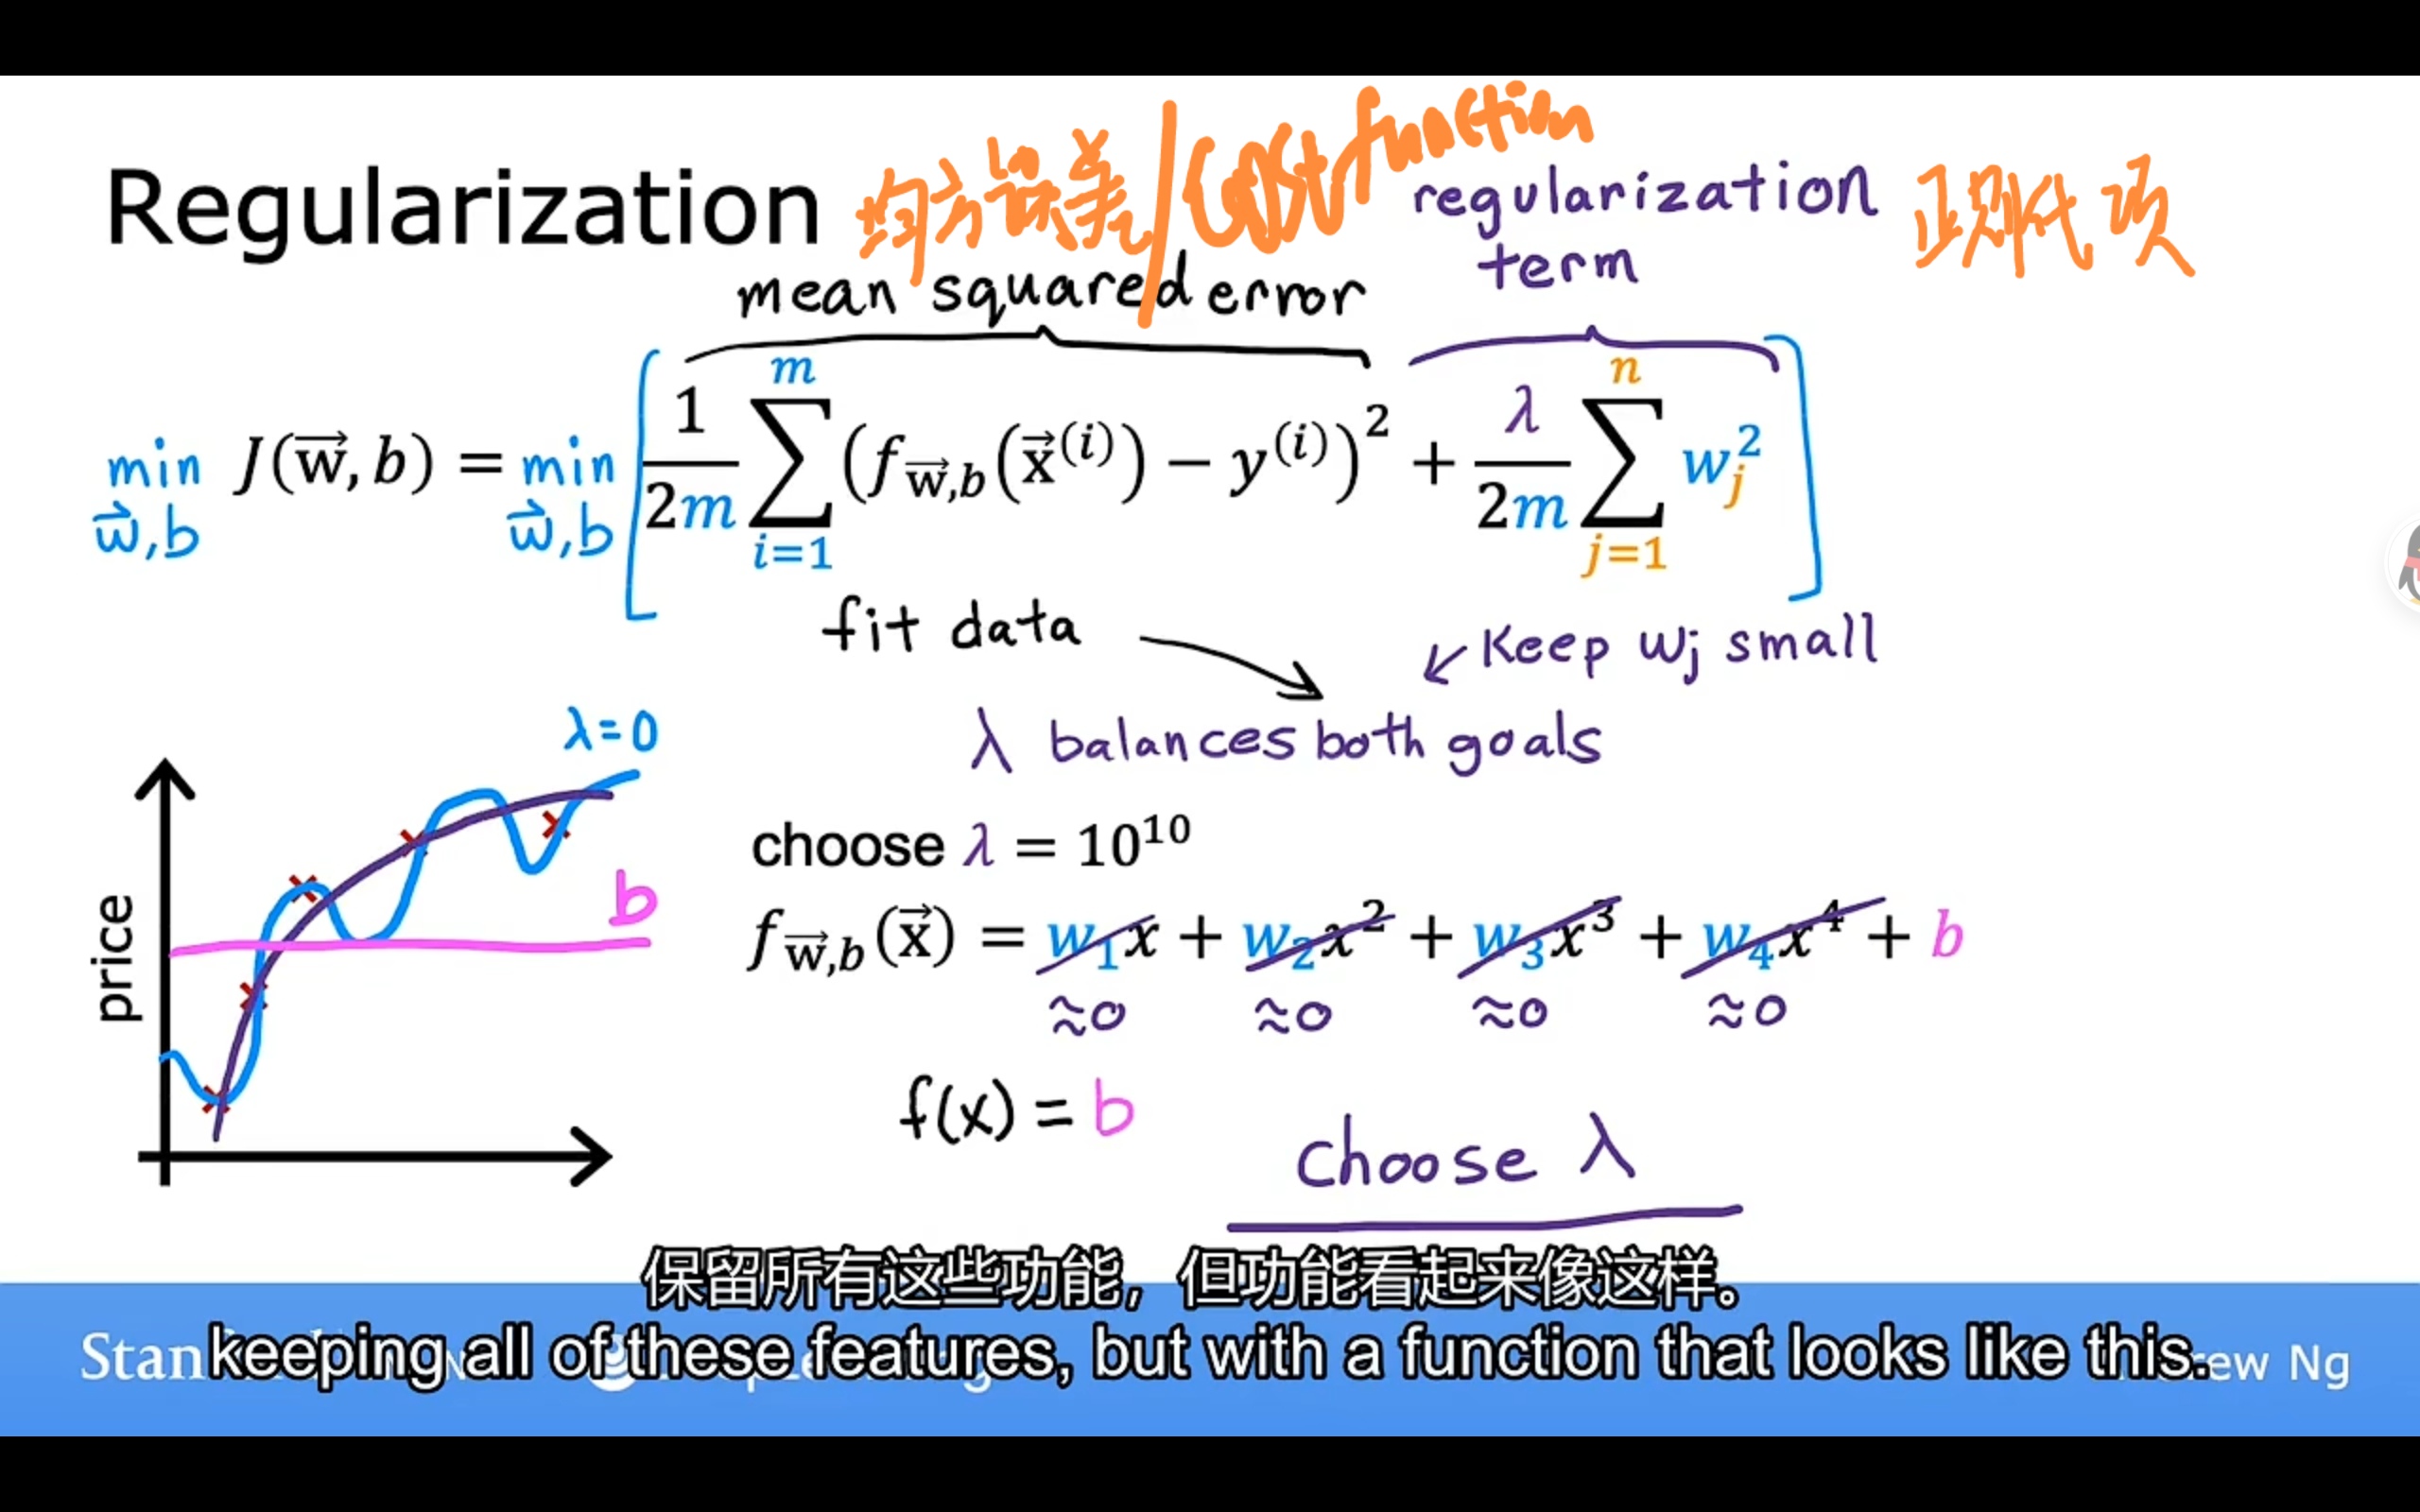 Regularization 均方误差/cost function
regularization term 正则化项
mean squared error
min w⃗,b J(w⃗, b) = min w⃗,b [ 1/2m ∑ i=1 m (f w⃗,b (x⃗⁽ⁱ⁾) − y⁽ⁱ⁾)² + λ/2m ∑ j=1 n wⱼ² ]
fit data
Keep wj small
λ balances both goals
λ=0
choose λ = 10¹⁰
b
price
f w⃗,b (x⃗) = w₁x + w₂x² + w₃x³ + w₄x⁴ + b
≈0 ≈0 ≈0 ≈0
f(x) = b
choose λ
保留所有这些功能，但功能看起来像这样。
keeping all of these features, but with a function that looks like this.
Stan
rew Ng